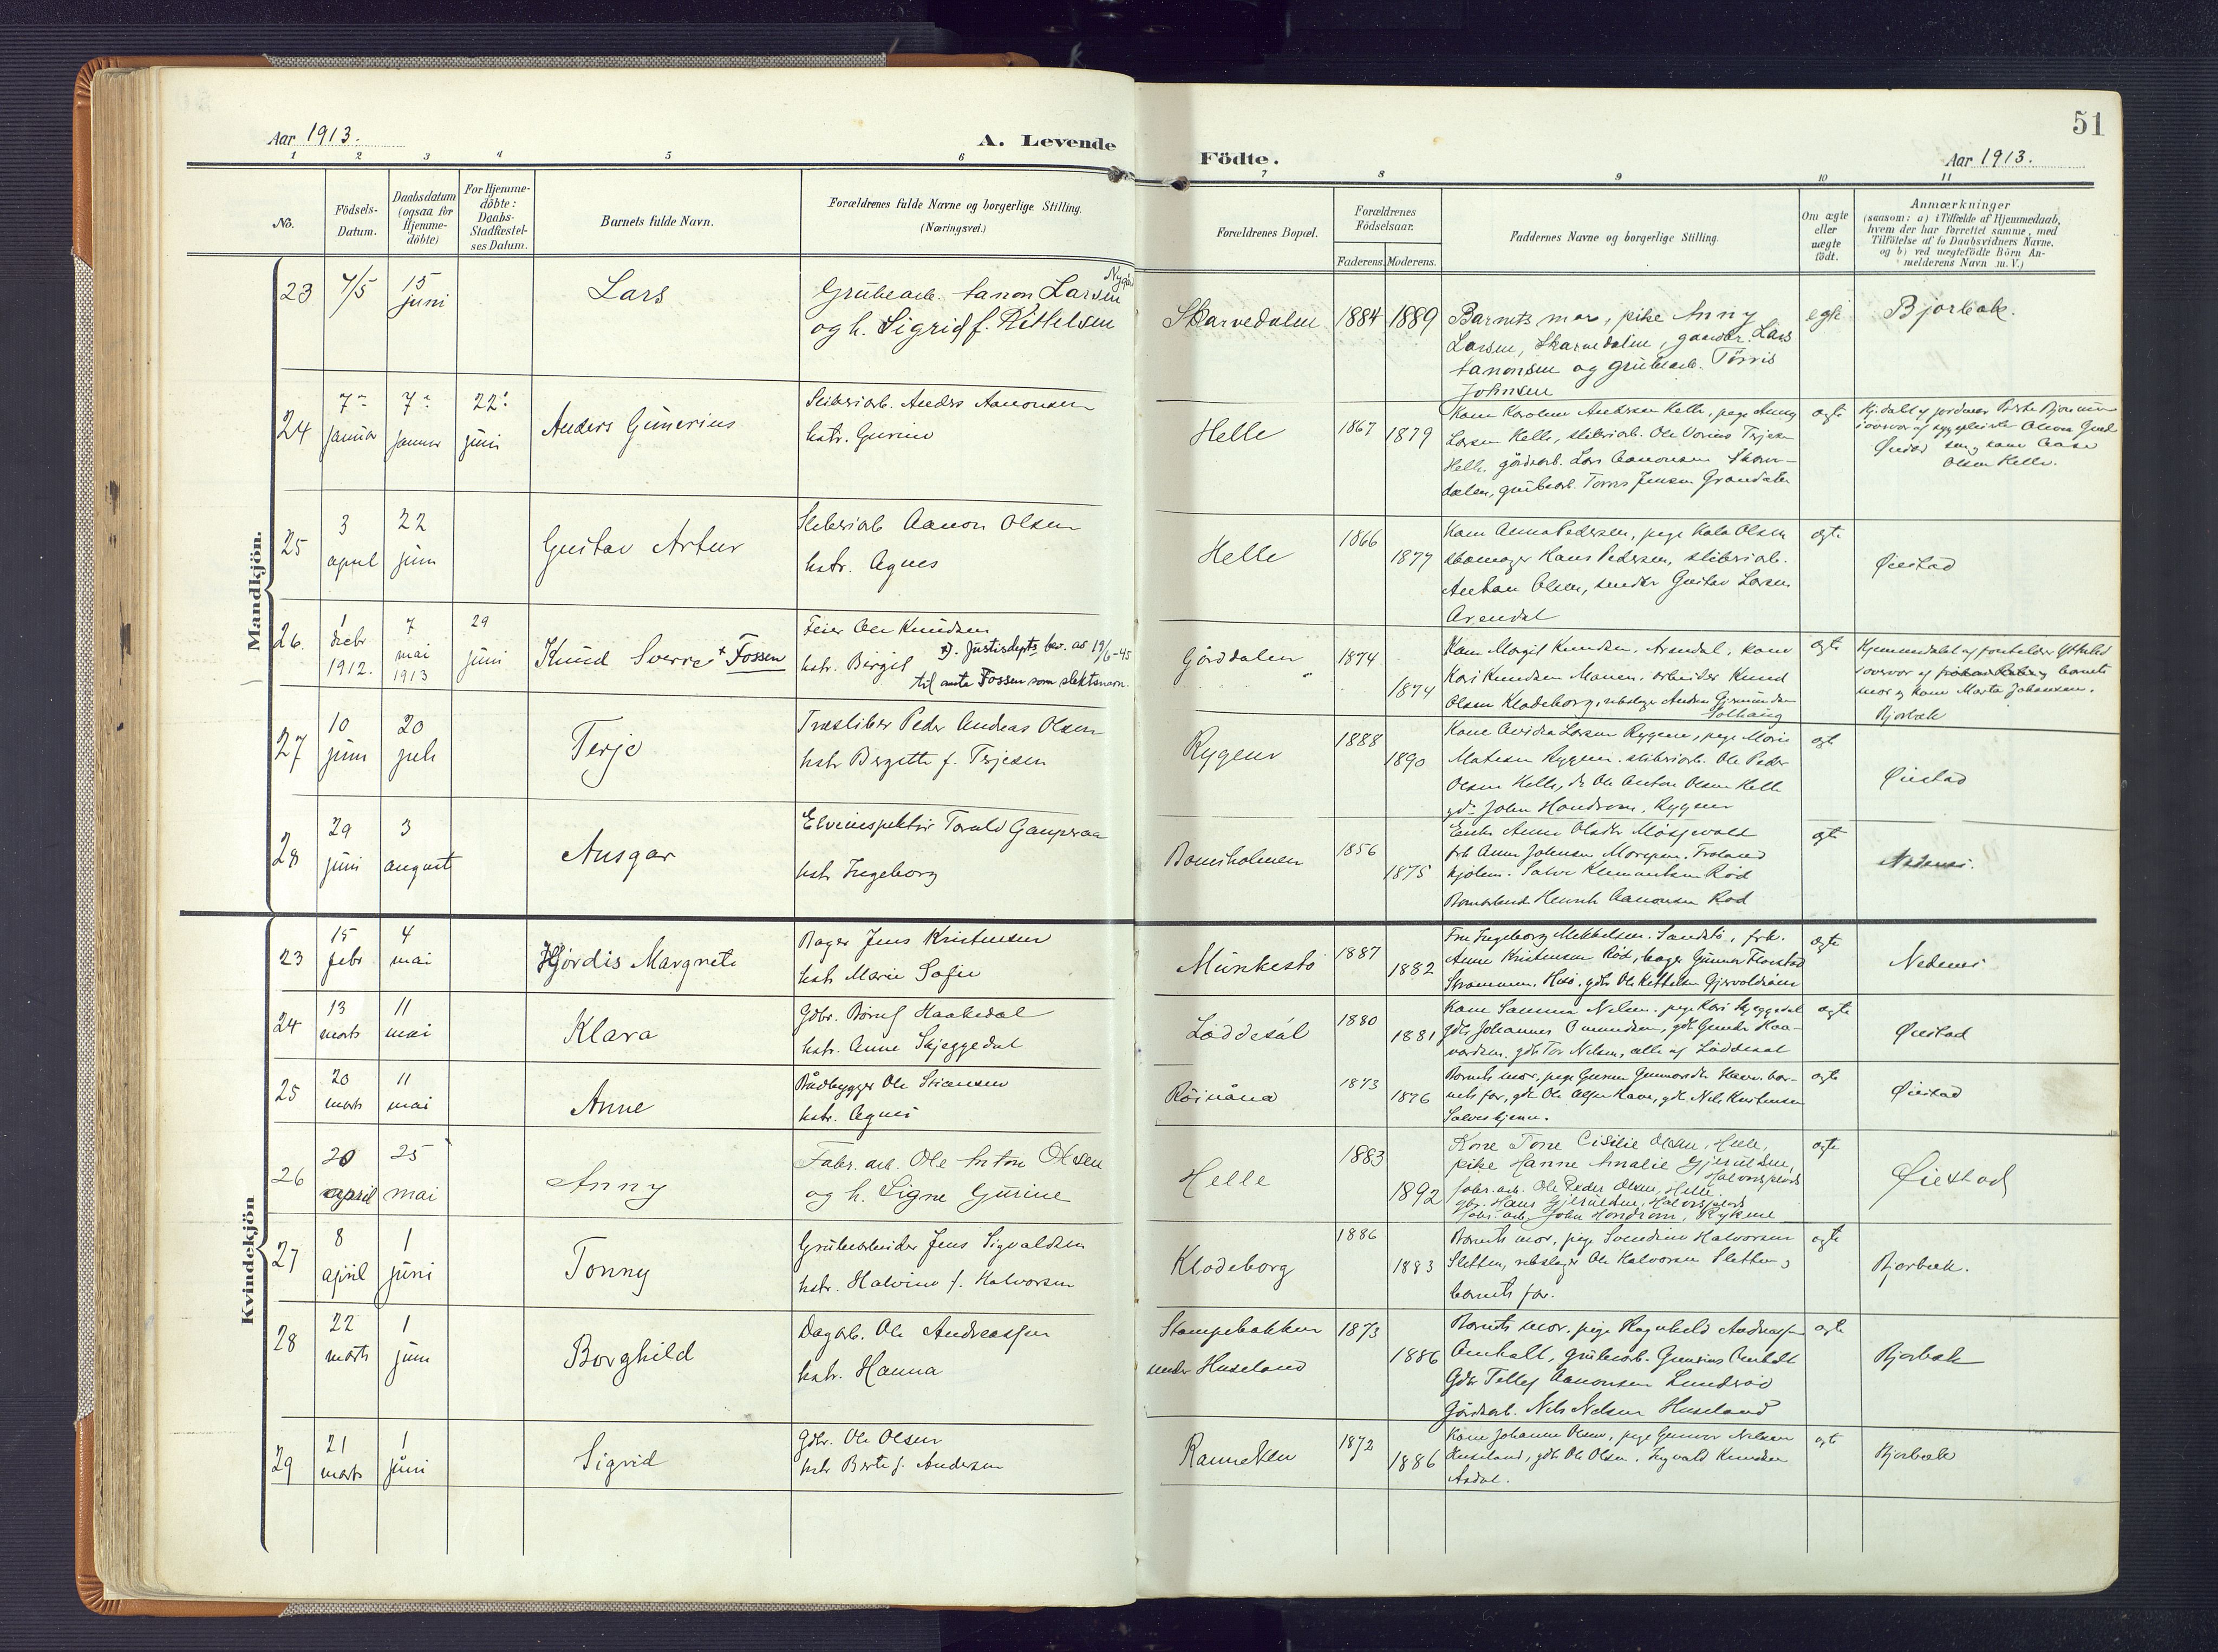 51
Aar 1913.
A. Levende
Födte.
Aar 1913.
1 2 3 4 5 6 7 8 9 10 11
No.
Födsels-
Datum.
Daabsdatum
(ogsaa for
Hjemme-
döbte)
For Hjemme-
döbte:
Daabs-
Stadfæstel-
ses Datum.
Barnets fulde Navn.
Forældrenes fulde Navne og borgerlige Stilling.
(Næringsvei.)
Forældrenes Bopæl.
Forældrenes
Födselsaar.
Faderens. Moderens.
Faddernes Navne og borgerlige Stilling.
Om ægte
eller
uægte
födt.
Anmærkninger
(saasom: a) i Tilfælde af Hjemmedaab,
hvem der har forrettet samme, med
Tilföielse af to Daabsvidners Navne.
og b) ved uægtefödte Börn An-
melderens Navn m. V.)
Mandkjön.
23 7/5 15 juni Lars
Grubearb. Aanon Larsen
og h. Sigrid f. Kittelsen
Skarvedalen 1884 1889
Barnets mor, pike Anny
Larsen, Skarvedalen, gaardbr. Lars
Aanonsen og grubearb. Tørris
Johnsen
egte Bjorbæk.
24 7de januar 7de januar 22de juni Anders Gunerius
Sliberiarb. Anders Aanonsen
hstr. Gurine
Helle 1867 1879
Kone Karoline Andersen Helle, pege Anny
Larsen Helle, sliberiarb. Ole Terjesen
Helle, gårdarb. Lars Aanonsen Skarve-
dalen, grubearb. Torris Jensen
ægte
Olsen Helle.
25 3 april 22 juni Gustav Artur
Sliberiarb Aanon Olsen
hstr. Agnes
Helle 1866 1877
Kone Anna Pedersen, pege Kala Olsen
skomager Hans Pedersen, sliberiarb.
Antan Olsen, snedker Gustav Larsen
Arendal
ægte Øiestad
26. 1 decbr 1912. 7 mai 1913 29 juni Knud Sverre x Fossen
Feier Ole Knudsen
hstr. Birgit
x). Justisdepts bev. av 19/6-45
til anta Fossen som slektsnavn.
Gjørddalen 1874 1874
Kone Margit Knudsen, Arendal, kone
Kari Knudsen Manen, arbeider Knud
Olsen Klodeborg, rebslager Anders Gjermundsen
Solhaug
ægte
mor og kone Marta Johansen.
Bjorbæk
27 10 juni 20 juli Terje
Træsliber Peder Andreas Olsen
hstr Birgitte f. Terjesen
Rygene 1888 1890
Kone Larsen Rygene, pege Marie
Matisen Rygene, sliberiarb. Ole Peder
Olsen Helle, do Ole Anton Olsen Helle
John Hondrom, Rygene
ægte Øiestad
28 29 juni 3 august Ansgar
Elveinspektør Torald Gamperaa
hstr Ingeborg
Bomsholmen 1856 1875
Enke Anne Olsdtr
frk Anna Johnsen Froland
Salve Klemmentsen Rød
Henrik Aanonsen Rød
ægte Nedenes.
Kvindekjön
23 15 febr 4 mai Hjördis Margrete
Bager Jens Kristensen
hstr Marie Sofie
Munkestø 1887 1882
Fru Ingeborg Mikkelsen, Sandstø, frk.
Anne Kristensen Rød, bager Gunnar Flaestad
Strømmen, Hisø, gdbr Ole Kittelsen
ægte Nedenes
24 13 marts 11 mai Klara
Gdbr. Börulf Haabedal
hstr. Anne Skjeggedal
Løddesøl 1880 1881
Kone Nilsen, pege Kari Skjeggedal
gdbr Johannes Omundsen, gdbr Gunder Haa-
vorsen, gdbr Tor Nilsen, alle af Løddesøl
ægte Øiestad
25 20 marts 11 mai Anne
Bådbygger Ole Stiansen
hstr. Agnes
Röinåna 1873 1876
Barnets mor, pege Gurine Gunnarsdtr Haave, bar-
nets far, gdbr Ole Olsen Haave, gdbr. Nils Kristensen
Salvestjenn.
ægte Øiestad
26 20 april 25 mai Anny
Fabr. arb. Ole Anton Olsen
og h. Signe Gurine
Helle 1883 1892
Kone Tone Cisilie Olsen, Helle,
pike Hanne Amalie Gjeruldsen,
Halvorsplads
fabr. arb. Ole Peder Olsen, Helle.
gbr. Hans Gjeruldsen, Halvorsplads
fabr. arb. John Hondrom, Rykene
ægte Øiestad
27 8 april 1 juni Tonny
Grubearbeider Jens Sigvaldsen
hstr. Halvine f. Halvorsen
Klodeborg 1886 1883
Barnets mor, pege Svendine Halvorsen
Sletten, rebslager Ole Halvorsen Sletten og
barnets far.
ægte Bjorbæk.
28 22 marts 1 juni Borghild
Dagarb. Ole Andreassen
hstr. Hanna
Stampebakken
under Huseland 1873 1886
Barnets mor, pige Ragnhild Andreassen
Amholt, grubearb. Gunerius Amholt
Gdbr Tellef Aanonsen Lunderød
Gårdarb. Nils Nilsen Huseland
ægte Bjorbæk
29 21 marts 1 juni Sigvid
Gdbr. Ole Olsen
hstr Berte f. Andersen
Rannekleiv 1872 1886
Kone Johanne Olsen, pege Gunvor Nilsen
Huseland, gdbr Ole Olsen, Ingvald Knudsen
Asdal.
ægte Bjorbæk